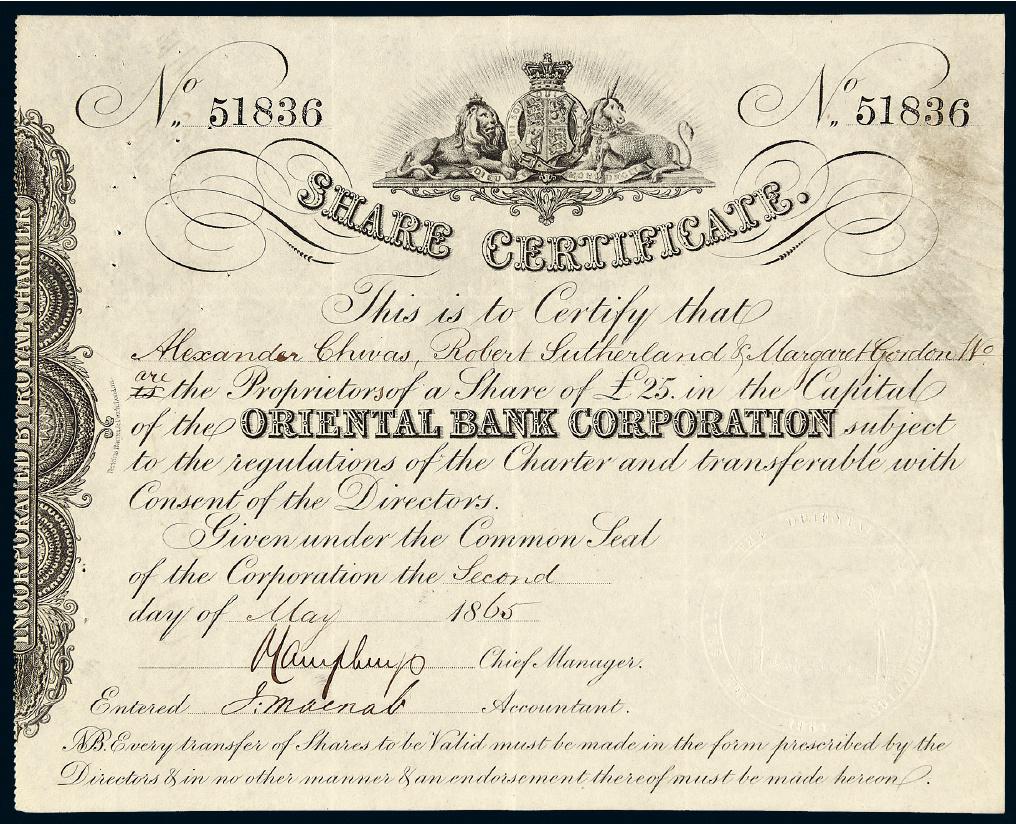 No 51836
No 51836
DIEU ET MON DROIT
SHARE CERTIFICATE.
This is to Certify that
Alexander Chivas, Robert Sutherland & Margaret Gordon
are
is the Proprietors of a Share of £25. in the Capital
of the ORIENTAL BANK CORPORATION subject
to the regulations of the Charter and transferable with
Consent of the Directors.
Given under the Common Seal
of the Corporation the Second
day of May 1865
Chief Manager.
Entered J. Macnab Accountant.
NB. Every transfer of Shares to be Valid must be made in the form prescribed by the
Directors & in no other manner & an endorsement thereof must be made hereon.
INCORPORATED BY ROYAL CHARTER